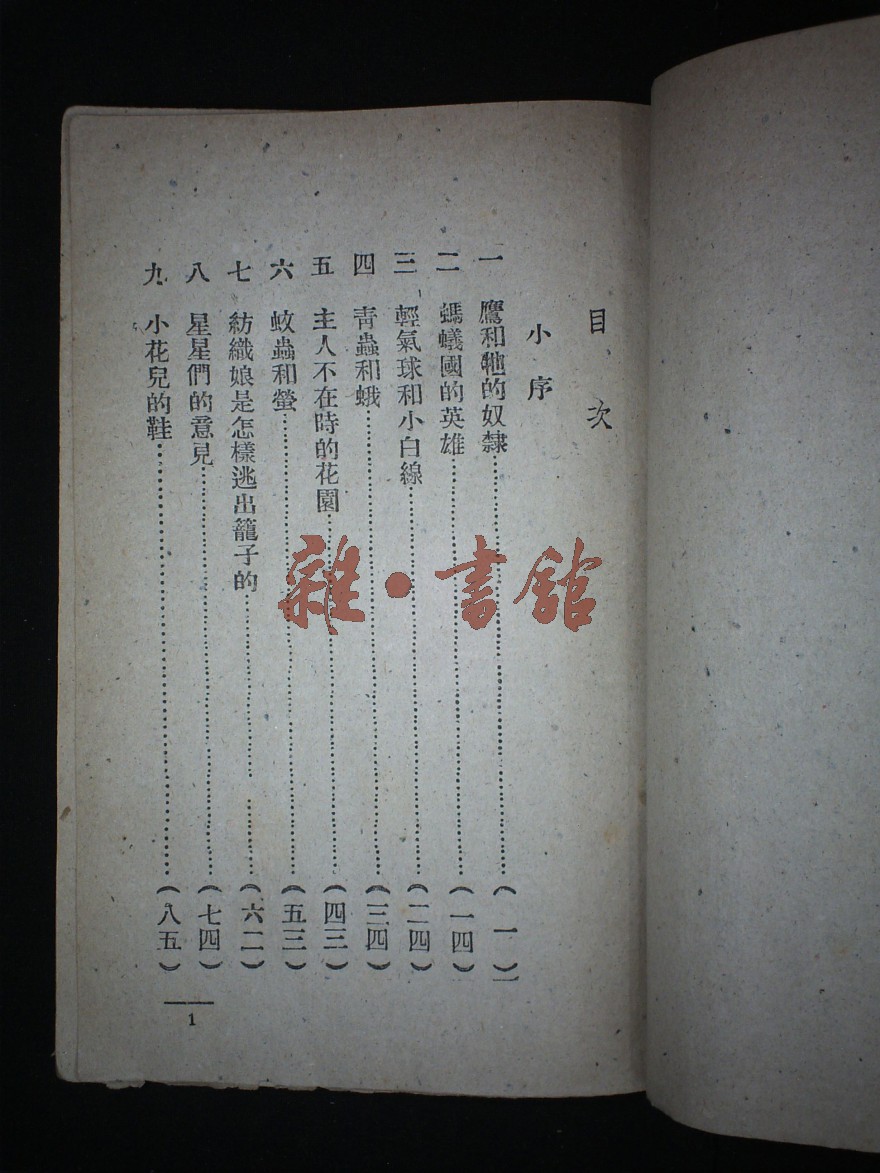 目次
小序
一 鷹和牠的奴隸……(一)
二 螞蟻國的英雄……(一四)
三 輕氣球和小白線……(二四)
四 青蟲和蛾……(三四)
五 主人不在時的花園……(四三)
六 蚊蟲和螢……(五三)
七 紡織娘是怎樣逃出籠子的……(六二)
八 星星們的意見……(七四)
九 小花兒的鞋……(八五)
1
雜·書館